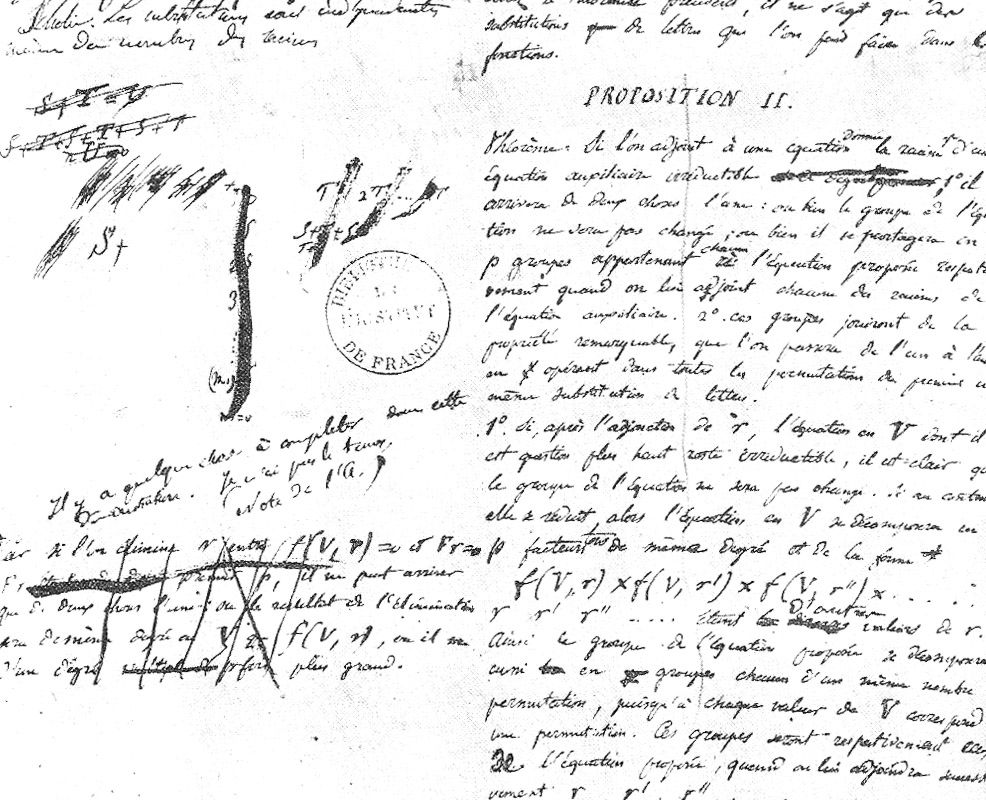 Les substitutions sont indépendantes
même du nombre des racines
S + T = U
S +
T 2T ....
3
BIBLIOTH
DE
L'INSTITUT
DE FRANCE
Il y a quelque chose à compléter dans cette
démonstration. Je n'ai pas le tems.
(Note de l'A.)
si l'on élimine r entre f(V, r) = 0 et Fr = 0
p, il ne peut arriver
que de deux choses l'une : ou le résultat de l'élimination
sera de même degré en V que f(V, r), ou il sera
d'un degré p fois plus grand.
précédent, il ne s'agit que des
substitutions de lettres que l'on peut faire dans les
fonctions.
PROPOSITION II.
Théorème. Si l'on adjoint à une équation donnée la racine r d'une
équation auxiliaire irréductible 1° il
arrivera de deux choses l'une : ou bien le groupe de l'équa
tion ne sera pas changé ; ou bien il se partagera en
p groupes appartenant chacun à l'équation proposée respecti
vement quand on lui adjoint chacune des racines de
l'équation auxiliaire. 2° ces groupes jouiront de la
propriété remarquable, que l'on passera de l'un à l'autre
en opérant dans toutes les permutations du premier une
même substitution de lettres.
1° Si, après l'adjonction de r, l'équation en V dont il
est question plus haut reste irréductible, il est clair que
le groupe de l'équation ne sera pas changé. Si au contraire
elle se réduit, alors l'équation en V se décomposera en
p facteurs tous de même degré et de la forme
f(V, r) × f(V, r') × f(V, r'') × ......
r r' r'' ..... étant d'autres valeurs de r.
Ainsi le groupe de l'équation proposée se décomposera
aussi en groupes chacun d'un même nombre
permutations, puisqu'à chaque valeur de V correspond
une permutation. Ces groupes seront respectivement ceux
de l'équation proposée, quand on lui adjoindra successi
vement r r' r''